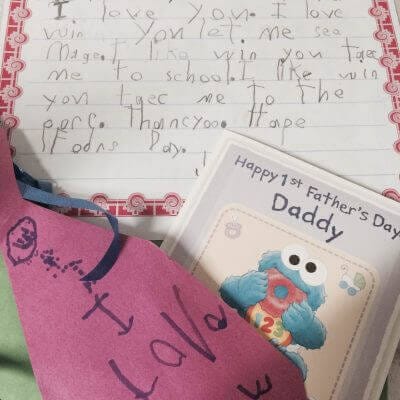 I love you. I love
win you let me see
Mage. I like win you tacc
me to school. I like win
you tacc me to the
parc. Thancyoo. Hape
Fodrs Day.
Happy 1st Father's Day
Daddy
123
I
LOVe